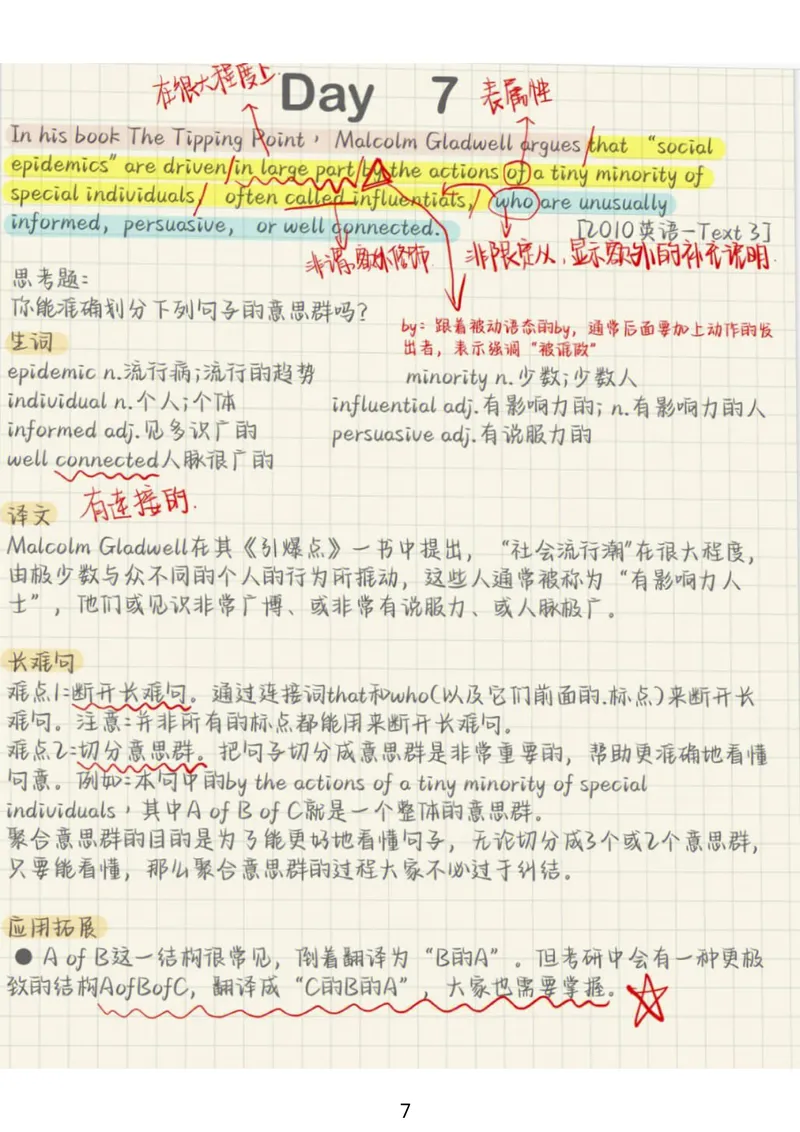 在很大程度上.
Day 7
表属性
In his book The Tipping Point， Malcolm Gladwell argues/that “social
epidemics” are driven/in large part/by the actions of a tiny minority of
special individuals/ often called influentials,/ who are unusually
informed, persuasive, or well connected.
[2010英语一Text 3]
非谓,额外修饰
非限定从,显示额外的补充说明.
思考题:
你能准确划分下列句子的意思群吗?
by: 跟着被动语态的by, 通常后面要加上动作的发
出者, 表示强调 “被谁做”
生词
epidemic n.流行病;流行的趋势
minority n.少数;少数人
individual n.个人;个体
influential adj.有影响力的; n.有影响力的人
informed adj.见多识广的
persuasive adj.有说服力的
well connected人脉很广的
有连接的.
译文
Malcolm Gladwell在其《引爆点》一书中提出, “社会流行潮”在很大程度,
由极少数与众不同的个人的行为所推动, 这些人通常被称为 “有影响力人
士” , 他们或见识非常广博、或非常有说服力、或人脉极广。
长难句
难点1:断开长难句。通过连接词that和who(以及它们前面的.标点)来断开长
难句。注意:并非所有的标点都能用来断开长难句。
难点2:切分意思群。把句子切分成意思群是非常重要的, 帮助更准确地看懂
句意。例如:本句中的by the actions of a tiny minority of special
individuals，其中A of B of C就是一个整体的意思群。
聚合意思群的目的是为了能更好地看懂句子, 无论切分成3个或2个意思群,
只要能看懂, 那么聚合意思群的过程大家不必过于纠结。
应用拓展
● A of B这一结构很常见, 倒着翻译为 “B的A” 。但考研中会有一种更极
致的结构AofBofC, 翻译成 “C的B的A” , 大家也需要掌握。
7